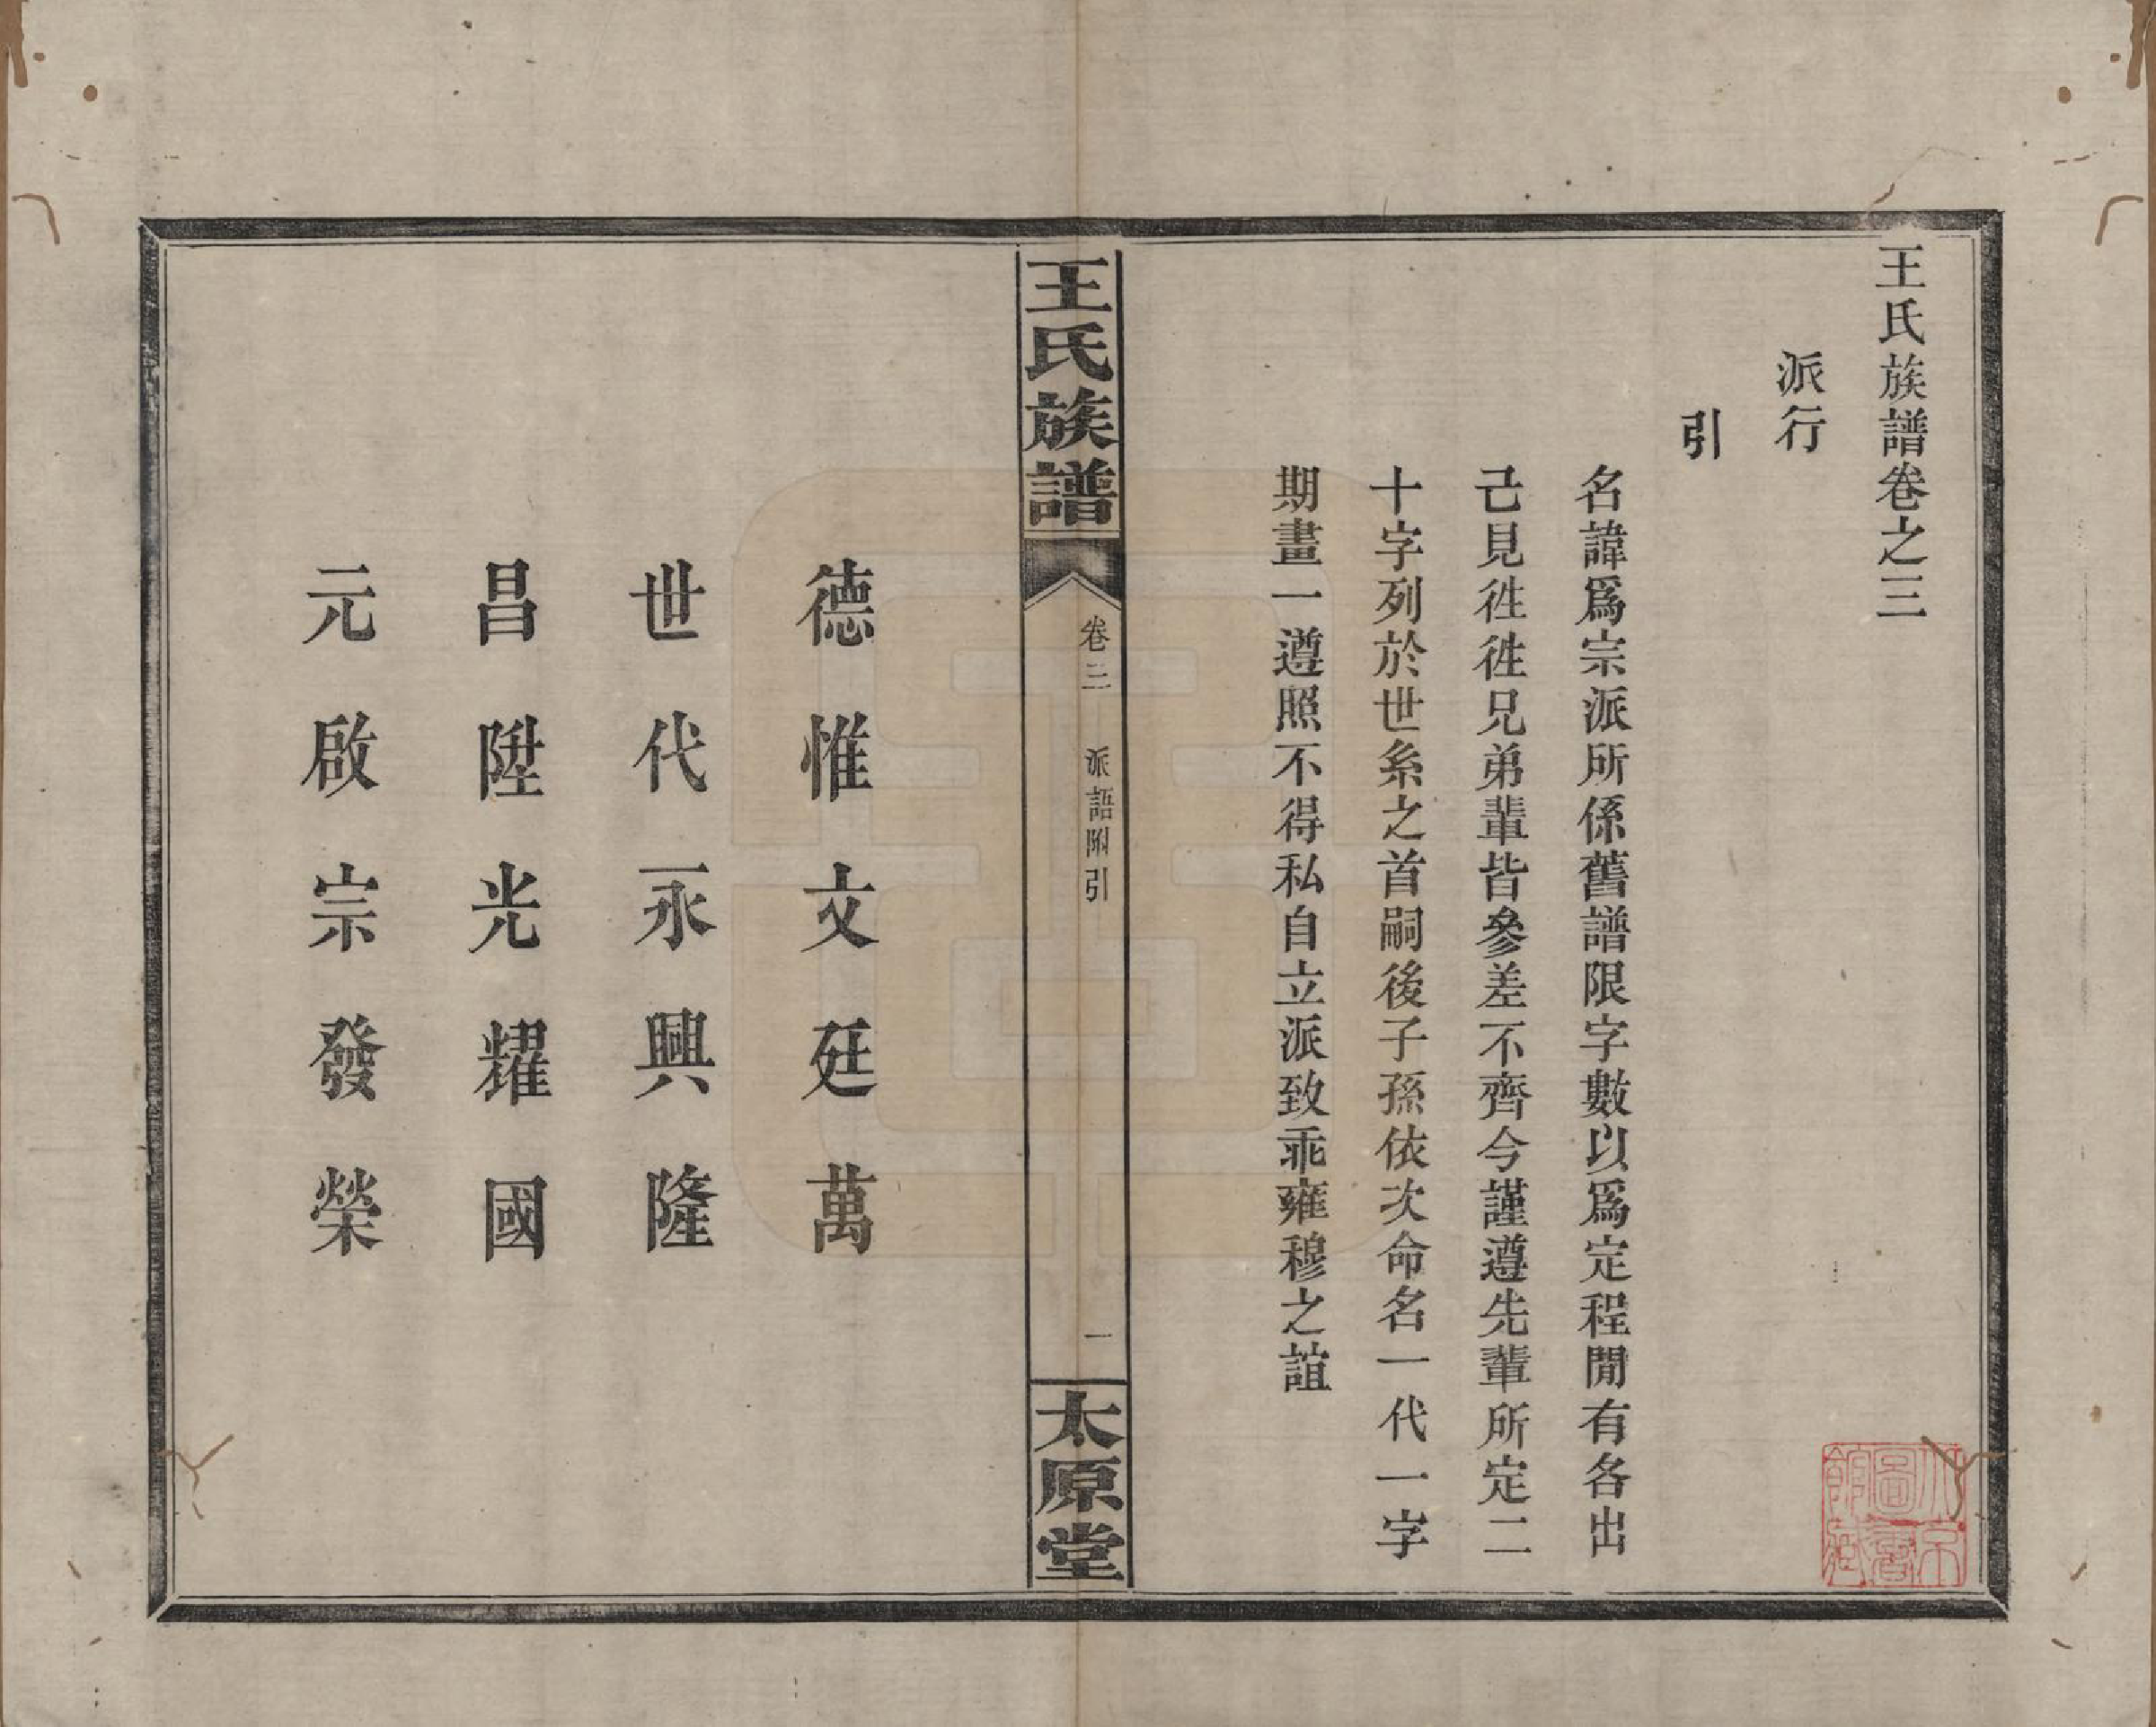 王氏族譜卷之三
派行
引
名諱爲宗派所係舊譜限字數以爲定程間有各出
己見徃徃兄弟輩皆參差不齊今謹遵先輩所定二
十字列於世系之首嗣後子孫依次命名一代一字
期畫一遵照不得私自立派致乖雍穆之誼
王氏族譜
卷三
派語附引
一
太原堂
德惟文廷萬
世代永興隆
昌陞光耀國
元啟宗發榮
北京
圖書
館藏